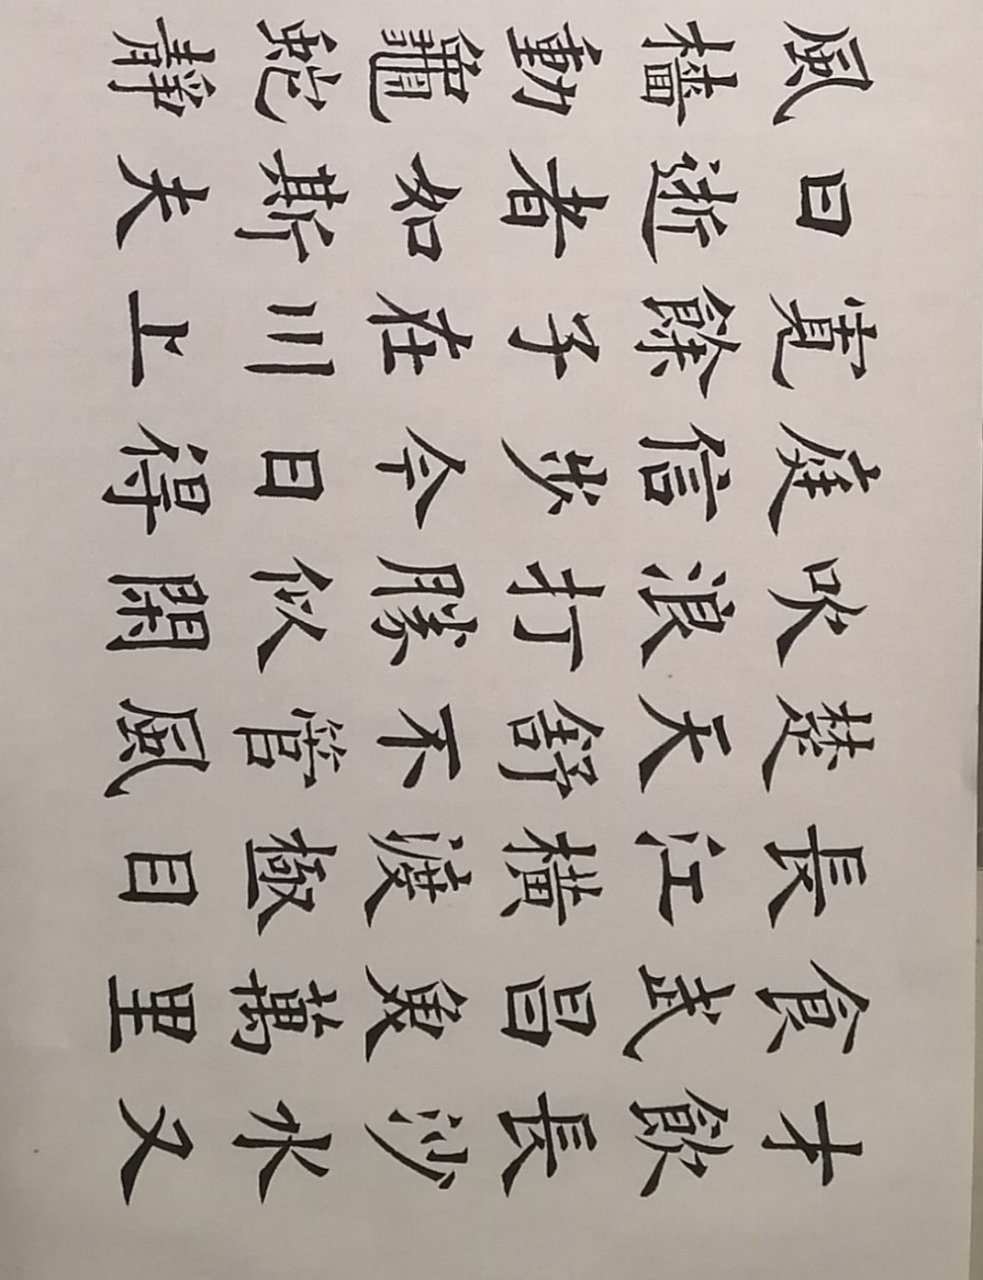 才飲長沙水又
食武昌魚萬里
長江橫渡極目
楚天舒不管風
吹浪打勝似閑
庭信步今日得
寬餘子在川上
曰逝者如斯夫
風檣動龜蛇靜